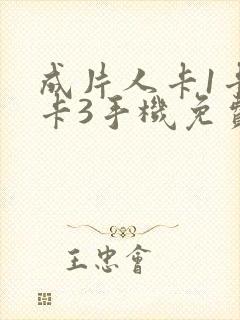 成片人卡1卡
卡3手機免費
王忠會